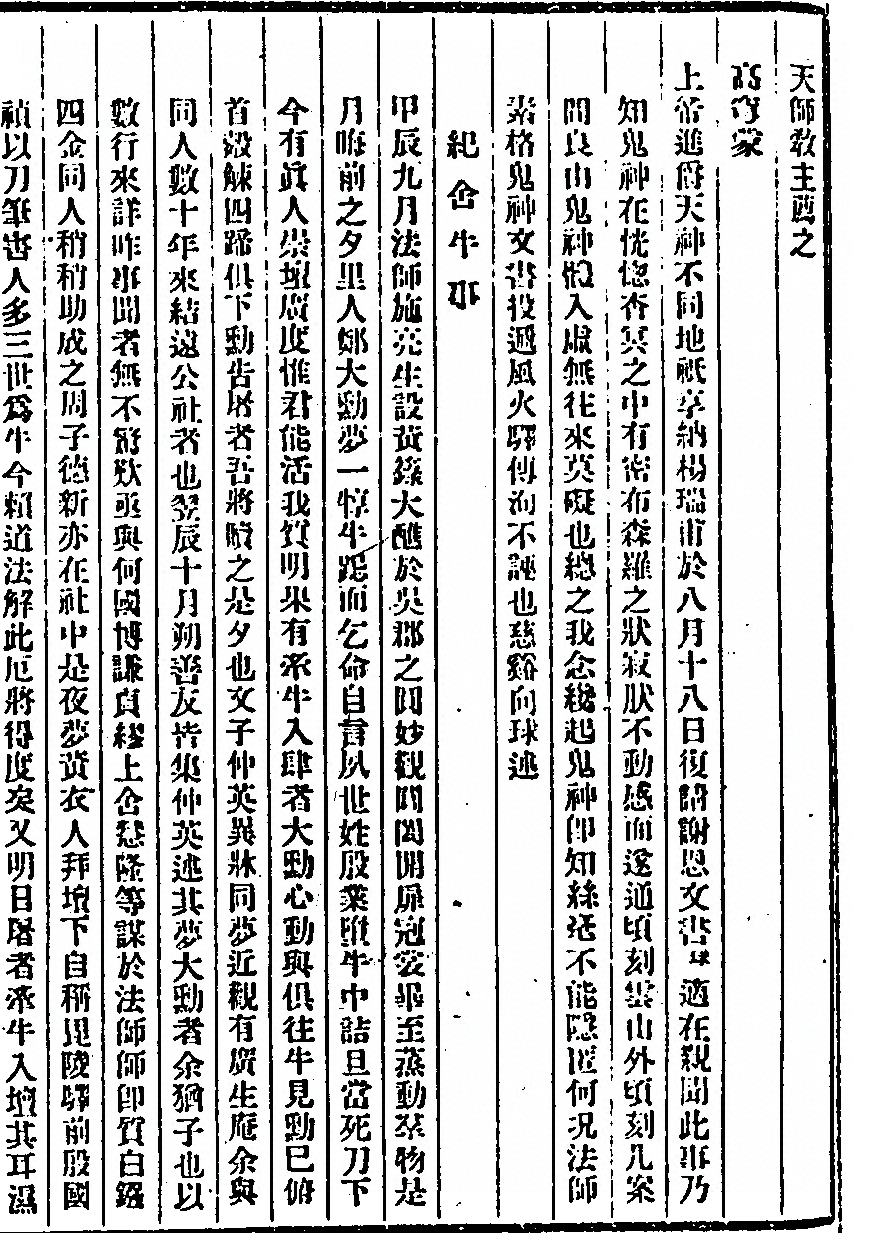 天師教主薦之
高穹蒙
上帝進爵天神不同地祇享納楊瑞甫於八月十八日復詣謝恩文書球適在親聞此事乃
知鬼神在恍惚杳冥之中有密布森羅之狀寂肰不動感而遂通頃刻雲山外頃刻几案
間良由鬼神假入虛無往來莫礙也總之我念纔起鬼神即知絲毫不能隱匿何况法師
素格鬼神文書投遞風火驛傳洵不誣也慈谿向球述
紀舍牛事
甲辰九月法師施亮生設黃籙大醮於吳郡之圓妙觀閶闔開扉冠裳畢至蒸動羣物是
月晦前之夕里人鄭大勳夢一犉牛跪而乞命自言夙世姓殷業墮牛中詰旦當死刀下
今有眞人崇壇廣度惟君能活我質明果有牽牛入肆者大勳心動與俱往牛見勳已俯
首觳觫四蹄俱下勳告屠者吾將贖之是夕也文子仲英異牀同夢近觀有廣生庵余與
同人數十年來結遠公社者也翌辰十月朔善友皆集仲英述其夢大勳者余猶子也以
數行來詳昨事聞者無不驚歎亟與何國博謙貞繆上舍慧隆等謀於法師師卽質白鏹
四金同人稍稍助成之周子德新亦在社中是夜夢黃衣人拜壇下自稱毘陵驛前殷國
禎以刀筆害人多三世爲牛今賴道法解此厄將得度矣又明日屠者牽牛入壇其耳濕